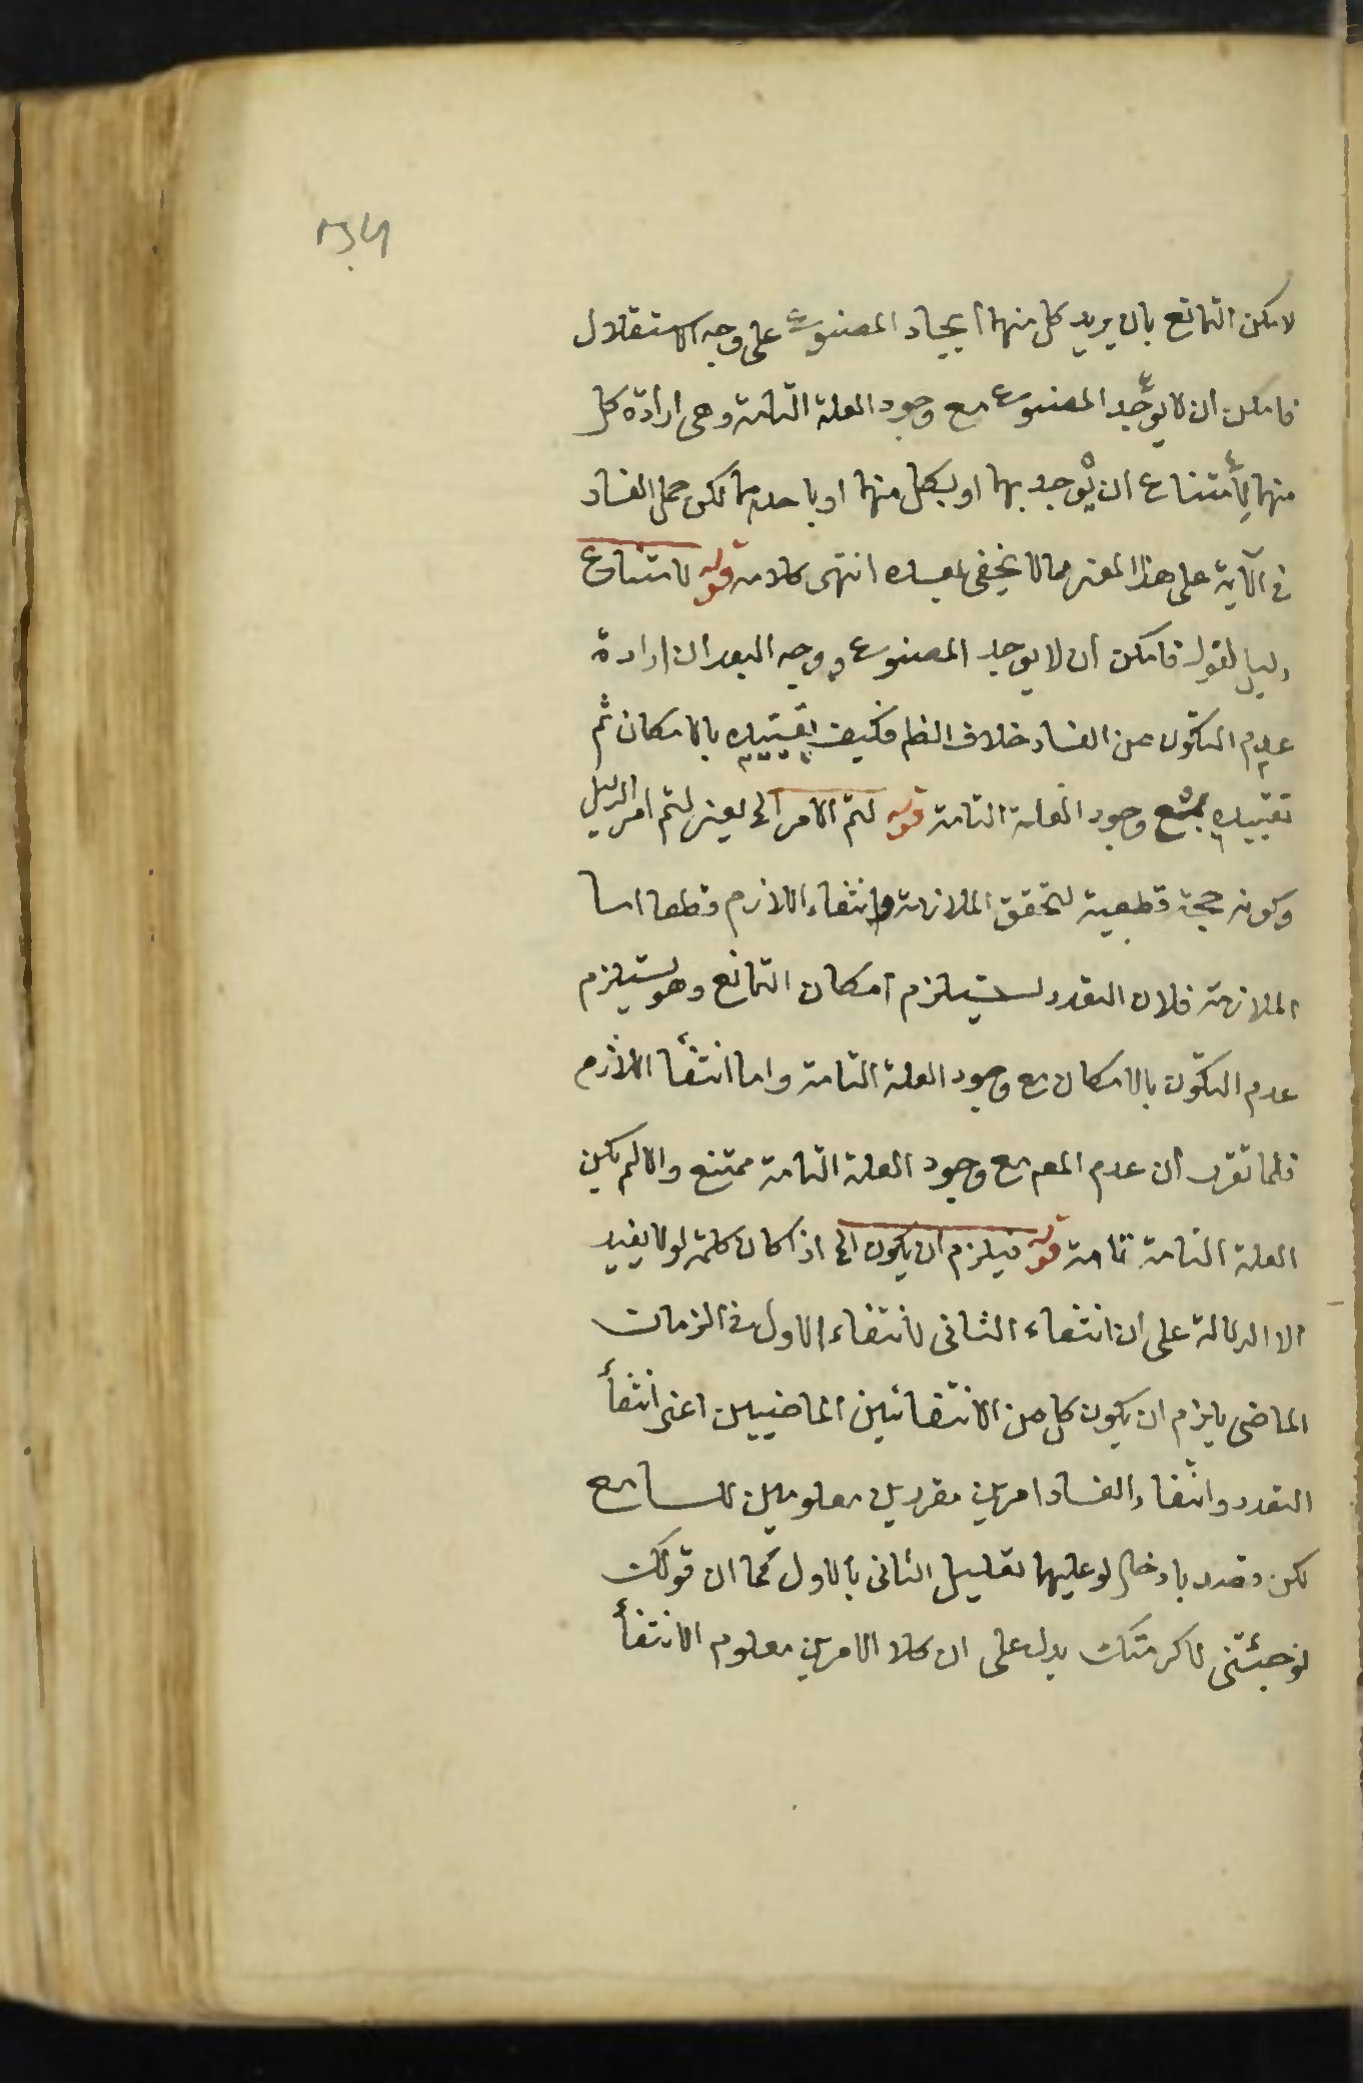 لامكن التمانع بان يريد كل منهما ايجاد المصنوع على وجه الاستقلال
فامكن ان لا يوجد المصنوع مع وجود العلة التامة وهى ارادة كل
منهما لامتناع ان يوجد بهما او بكل منهما او باحدهما لكن حمل الفساد
فى الآية على هذا المعنى مما لا يخفى بعده انتهى كلامه قوله لامتناع
دليل لقوله فامكن ان لا يوجد المصنوع ووجه البعد ان ارادة
عدم التكون من الفساد خلاف الظ فكيف تقييده بالامكان ثم
تقييده بمع وجود العلة التامة قوله لتم الامر الخ يعنى لتم امر الدليل
وكونه حجة قطعية لتحقق الملازمة وانتفاء اللازم قطعا اما
الملازمة فلان التعدد يستلزم امكان التمانع وهو يستلزم
عدم التكون بالامكان مع وجود العلة التامة واما انتفأ اللازم
فلما تقرر ان عدم المعم مع وجود العلة التامة ممتنع والا لم يكن
العلة التامة تامة قوله فيلزم ان يكون الخ اذا كان كلمة لو لا يفيد
الا الدلالة على ان انتفاء الثانى لانتفاء الاول فى الزمان
الماضى يلزم ان يكون كل من الانتفائين الماضيين اعنى انتفأ
التعدد وانتفاء الفساد امرين مقررين معلومين للسامع
لكن قصد بادخال لو عليهما تعليل الثانى بالاول كما ان قولك
لو جئتنى لاكرمتك يدل على ان كلا الامرين معلوم الانتفأ